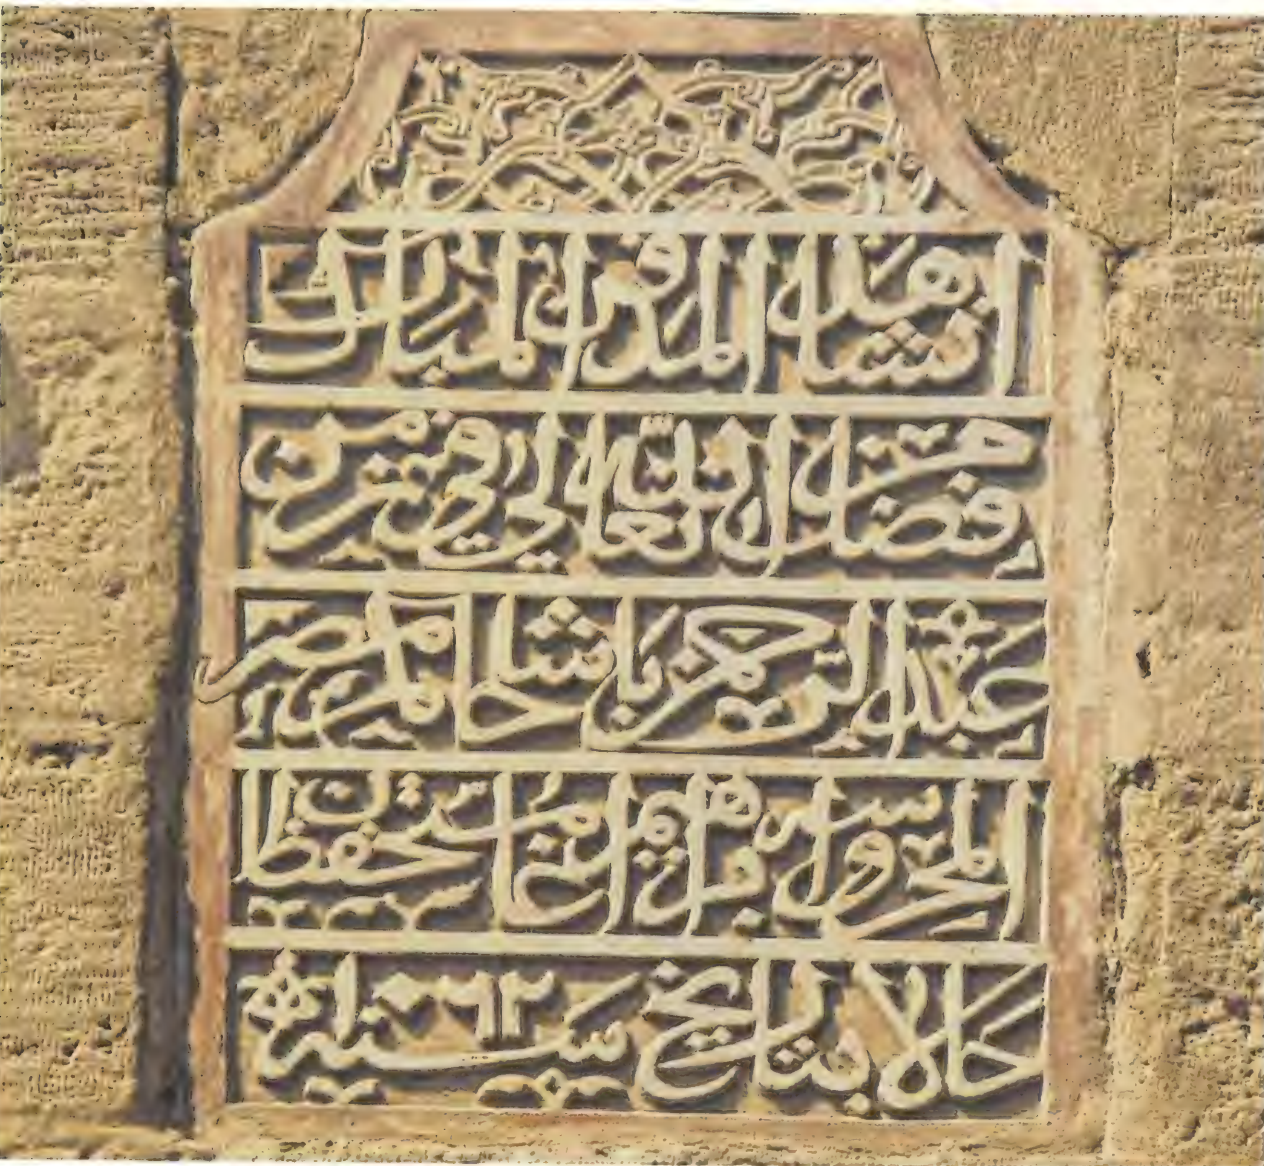 انشا هذا المدفن المبارك
من فضل الله تعالي في زمن
عبد الرحمن باشا حاكم مصر
المحروسه ابراهيم اغا مستحفظان
حالا بتاريخ سنة ١٠٦٢